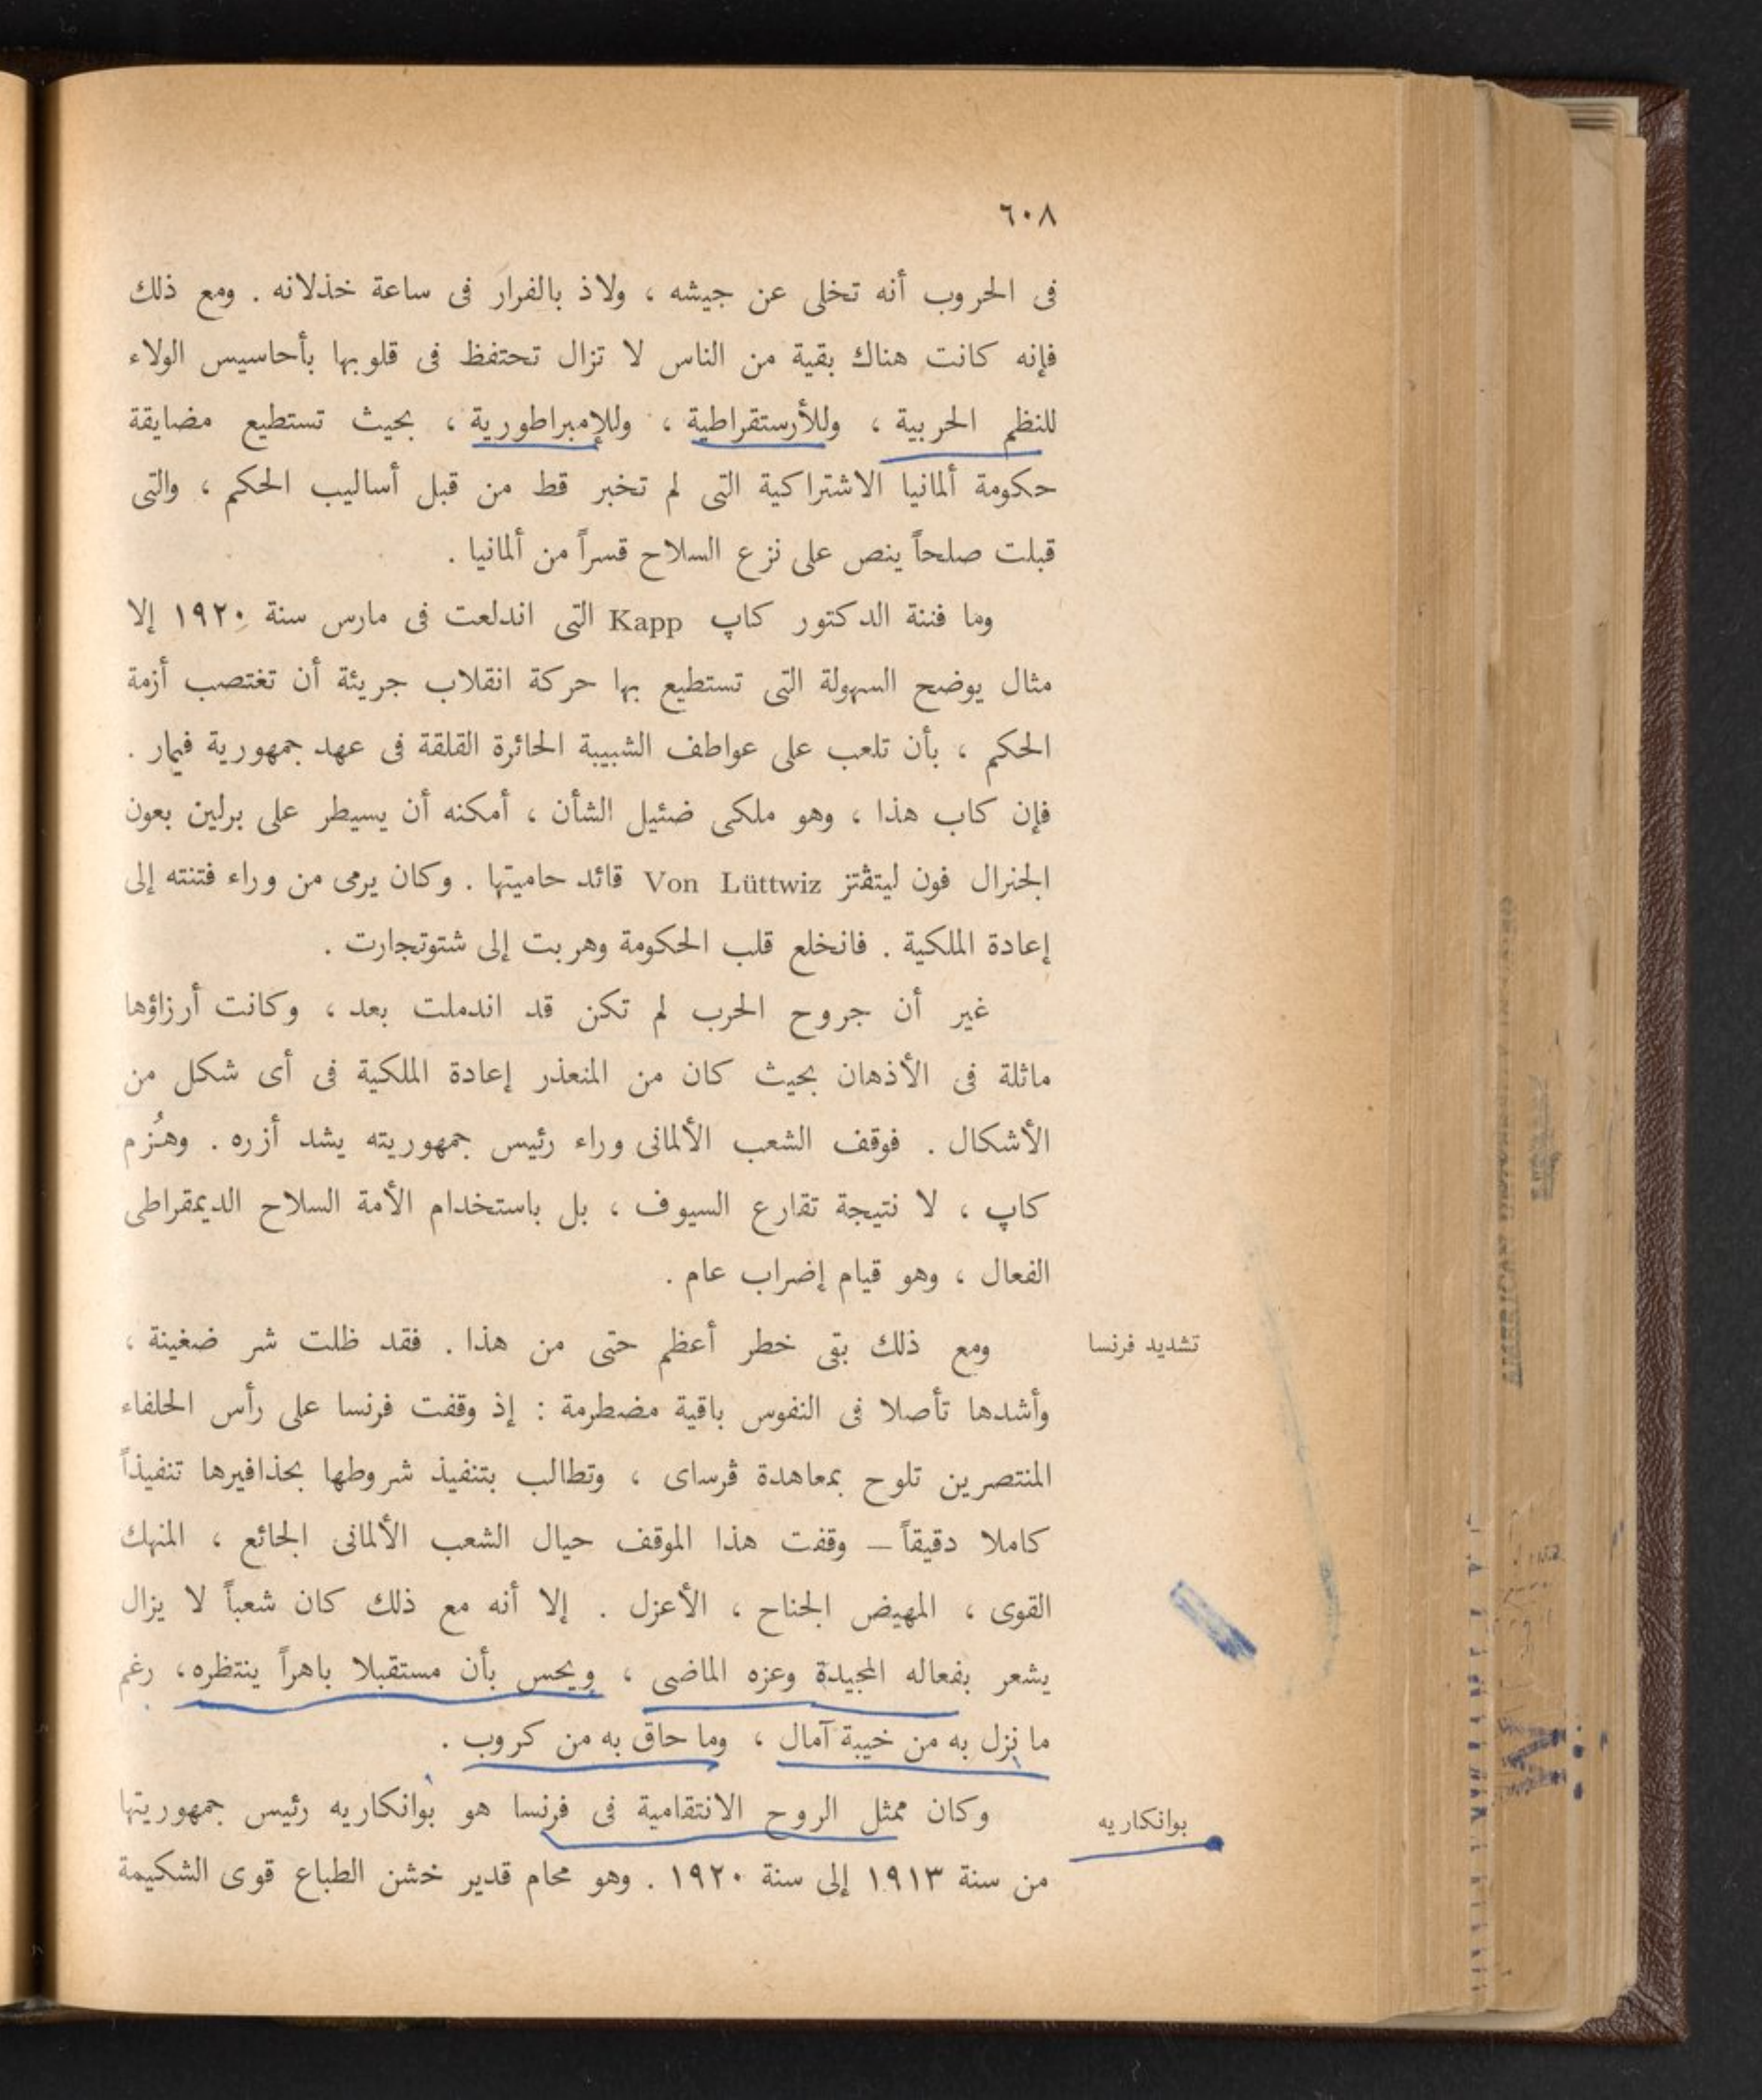 ٦٠٨
فى الحروب أنه تخلى عن جيشه ، ولاذ بالفرار فى ساعة خذلانه . ومع ذلك
فإنه كانت هناك بقية من الناس لا تزال تحتفظ فى قلوبها بأحاسيس الولاء
للنظم الحربية ، وللأرستقراطية ، وللإمبراطورية ، بحيث تستطيع مضايقة
حكومة ألمانيا الاشتراكية التى لم تخبر قط من قبل أساليب الحكم ، والتى
قبلت صلحاً ينص على نزع السلاح قسراً من ألمانيا .
وما فتنة الدكتور كاپ Kapp التى اندلعت فى مارس سنة ١٩٢٠ إلا
مثال يوضح السهولة التى تستطيع بها حركة انقلاب جريئة أن تغتصب أزمة
الحكم ، بأن تلعب على عواطف الشبيبة الحائرة القلقة فى عهد جمهورية فيمار .
فإن كاب هذا ، وهو ملكى ضئيل الشأن ، أمكنه أن يسيطر على برلين بعون
الجنرال فون ليتڤتز Von Lüttwiz قائد حاميتها . وكان يرمى من وراء فتنته إلى
إعادة الملكية . فانخلع قلب الحكومة وهربت إلى شتوتجارت .
غير أن جروح الحرب لم تكن قد اندملت بعد ، وكانت أرزاؤها
ماثلة فى الأذهان بحيث كان من المتعذر إعادة الملكية فى أى شكل من
الأشكال . فوقف الشعب الألمانى وراء رئيس جمهوريته يشد أزره . وهُزم
كاپ ، لا نتيجة تقارع السيوف ، بل باستخدام الأمة السلاح الديمقراطى
الفعال ، وهو قيام إضراب عام .
تشديد فرنسا
ومع ذلك بقى خطر أعظم حتى من هذا . فقد ظلت شر ضغينة ،
وأشدها تأصلا فى النفوس باقية مضطرمة : إذ وقفت فرنسا على رأس الحلفاء
المنتصرين تلوح بمعاهدة ڤرساى ، وتطالب بتنفيذ شروطها بحذافيرها تنفيذاً
كاملا دقيقاً – وقفت هذا الموقف حيال الشعب الألمانى الجائع ، المنهك
القوى ، المهيض الجناح ، الأعزل . إلا أنه مع ذلك كان شعباً لا يزال
يشعر بفعاله المجيدة وعزه الماضى ، ويحس بأن مستقبلا باهراً ينتظره، رغم
ما نزل به من خيبة آمال ، وما حاق به من كروب .
بوانكاريه
وكان ممثل الروح الانتقامية فى فرنسا هو بوانكاريه رئيس جمهوريتها
من سنة ١٩١٣ إلى سنة ١٩٢٠ . وهو محام قدير خشن الطباع قوى الشكيمة